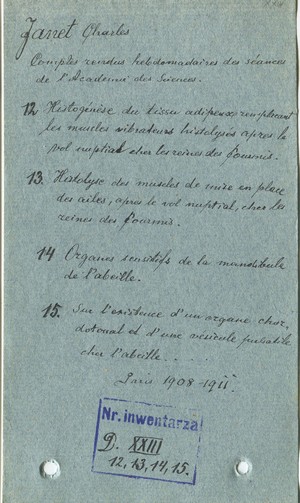 Janet Charles
Comptes rendus hebdomadaires des séances
de l'Académie des Sciences.
12 Histogénèse du tissu adipeux remplaçant
les muscles vibrateurs histolysés après le
vol nuptial chez les reines des Fourmis.
13. Histolyse des muscles de mise en place
des ailes, après le vol nuptial, chez les
reines des Fourmis.
14 Organes sensitifs de la mandibule
de l'abeille.
15. Sur l'existence d'un organe chor-
dotonal et d'une vésicule pulsatile
chez l'abeille . . . .
Paris 1908-1911.
Nr. inwentarza
D. XXIII
12, 13, 14, 15.